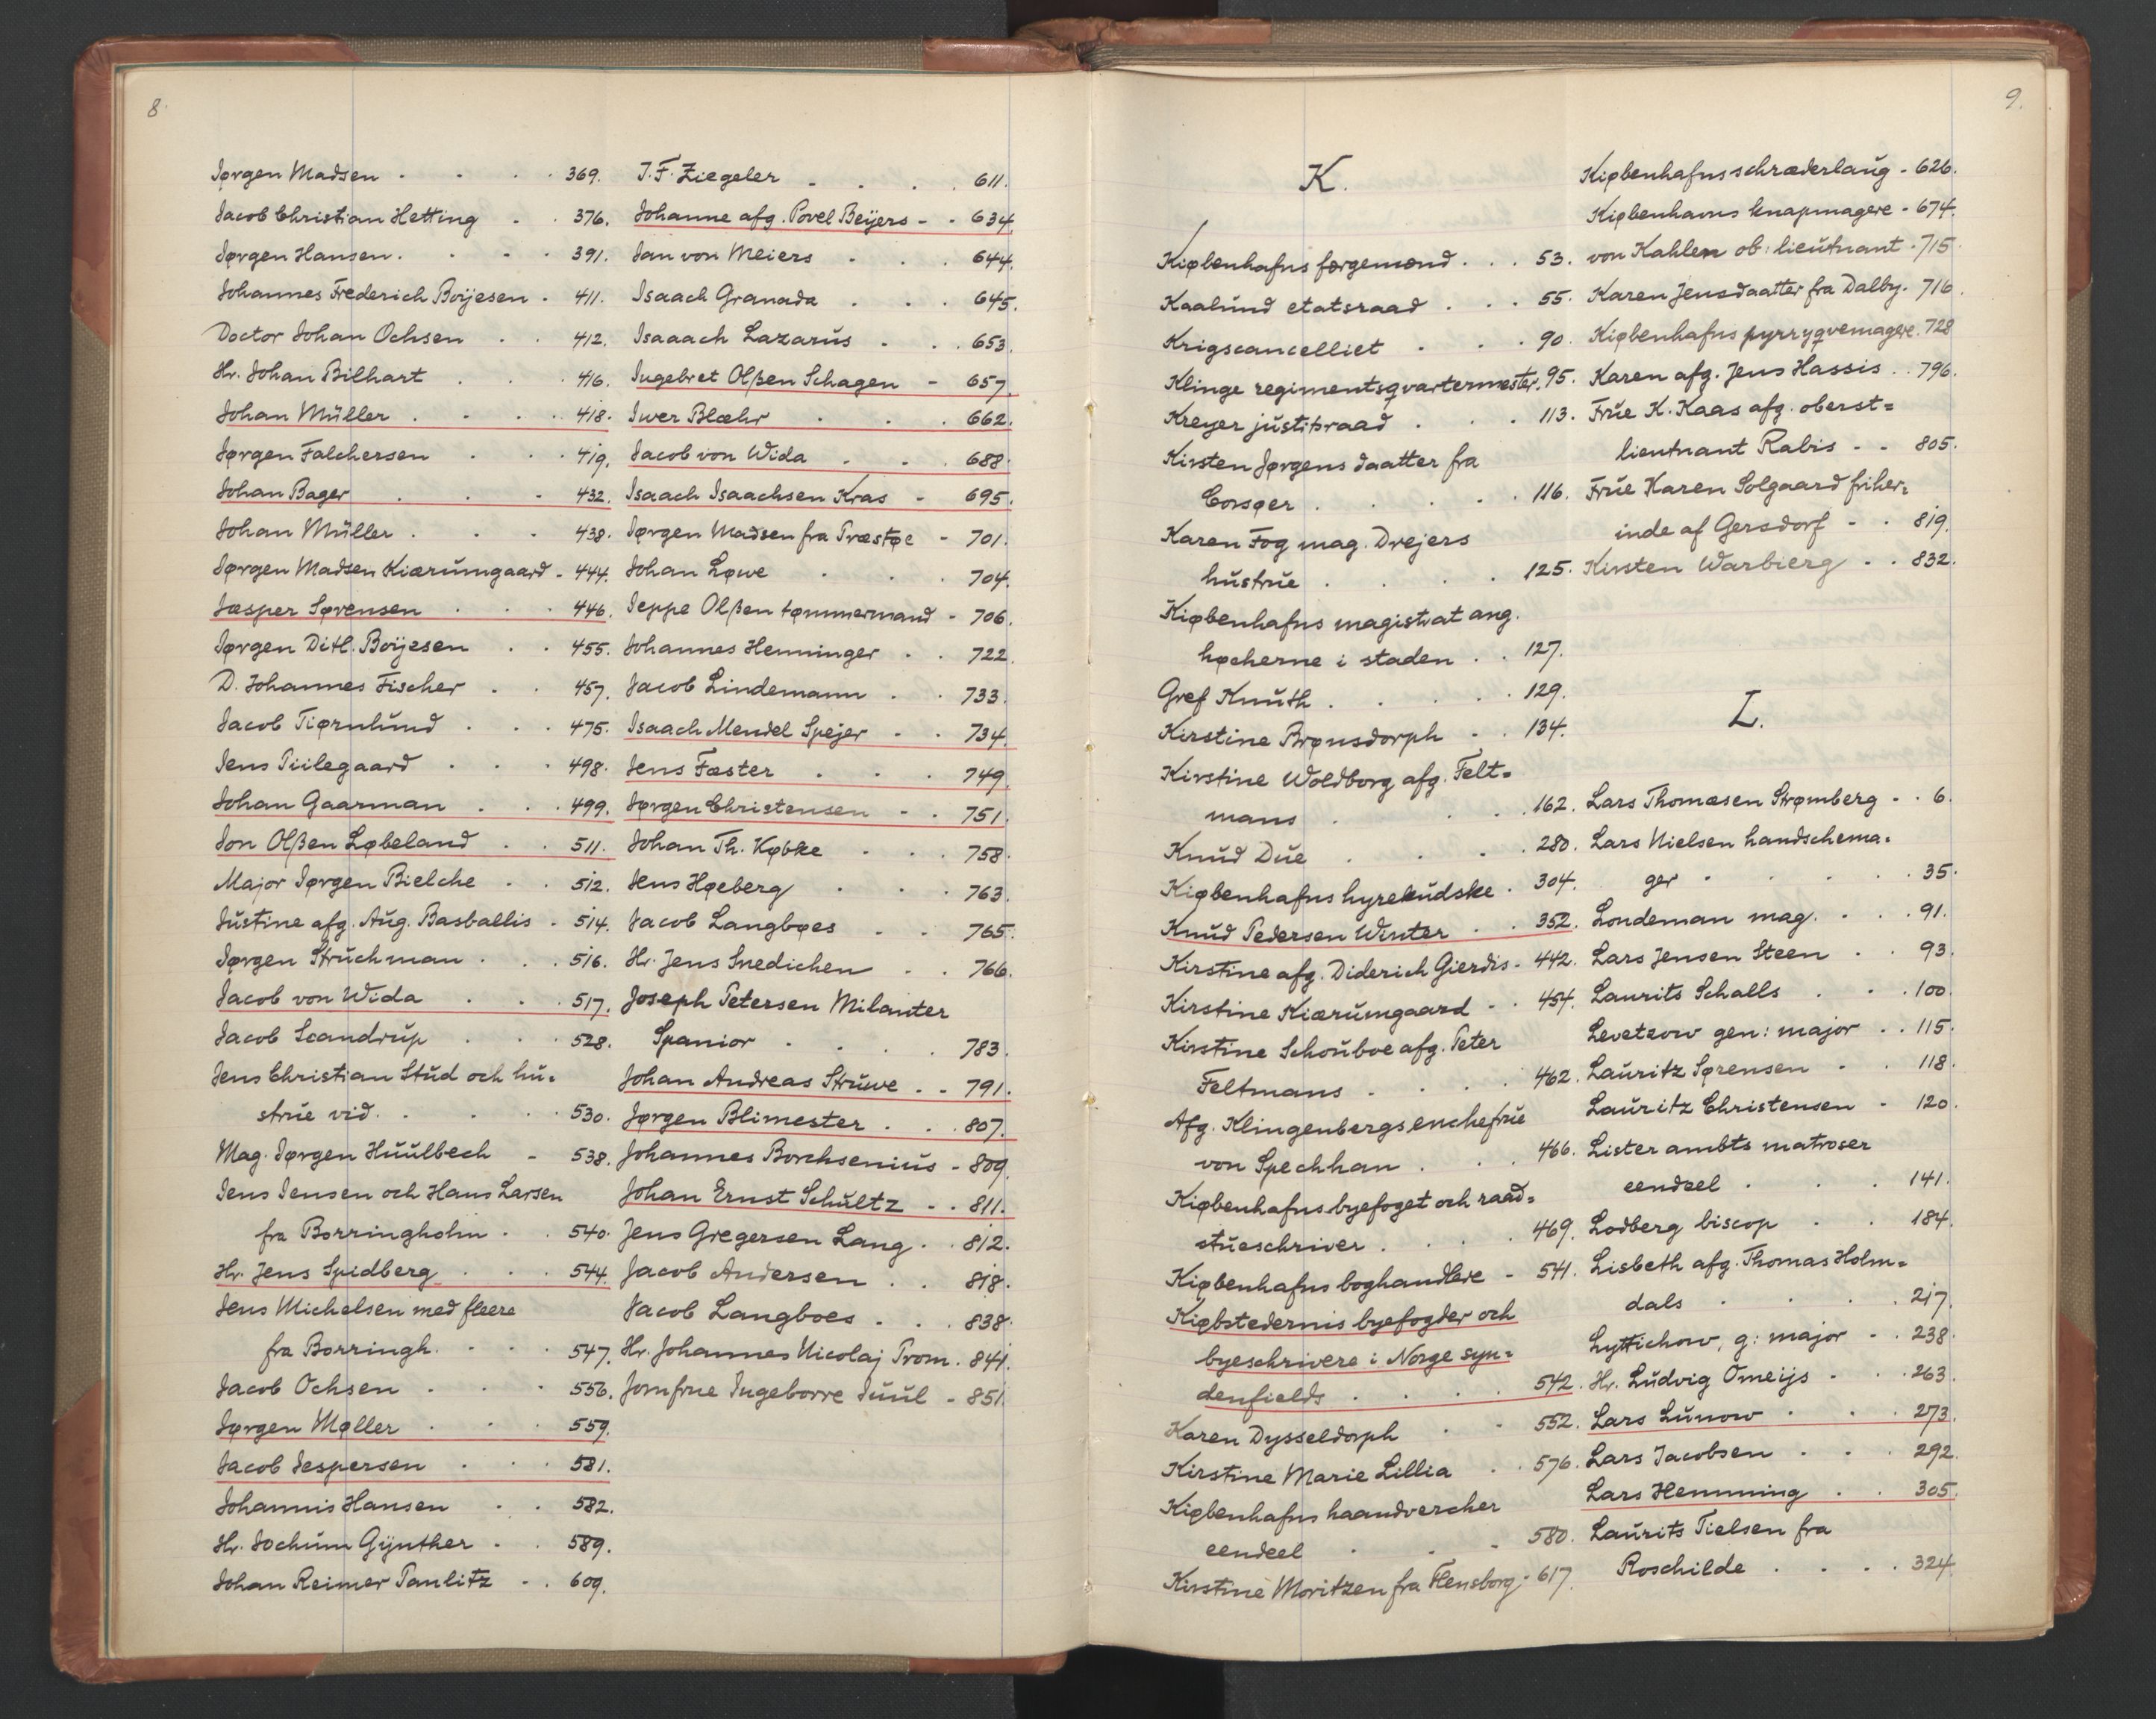 8.
Jørgen Madsen . . . . 369.
Jacob Christian Hetting . . 376.
Jørgen Hansen . . . . 391.
Johannes Frederich Boijesen . 411.
Doctor Johan Ochsen . . 412.
Hr. Johan Bilhart . . . 416.
Johan Müller . . . . 418.
Jørgen Falchersen . . . 419.
Johan Bager . . . 432.
Johan Müller . . . 438.
Jørgen Madsen Kiærumgaard - 444.
Jæsper Sørensen . . . 446.
Jørgen Ditl. Boijesen . . 455.
D. Johannes Fischer . . 457.
Jacob Tiørnlund . . . 475.
Jens Piilegaard . . . 498.
Johan Gaarman . . . 499.
Jon Olßen Løbeland . . 511.
Major Jørgen Bielche . . 512.
Justine afg. Aug. Basballis - 514.
Jørgen Struchman . . . 516.
Jacob von Wida . . . 517.
Jacob Scandrup . . . 528.
Jens Christian Stud och hu=
strue vid. . . . . 530.
Mag. Jørgen Huulbech - 538.
Jens Jensen och Hans Larsen
fra Borringholm . . 540.
Hr. Jens Spidberg . . . 544.
Jens Michelsen med fleere
fra Borringh. . . . 547.
Jacob Ochsen . . . 556.
Jørgen Møller . . . 559.
Jacob Jespersen . . . 581.
Johannis Hansen . . 582.
Hr. Jochum Gijnther . . 589.
Johan Reimer Panlitz - . 609.
J. F. Ziegeler . . . . 611.
Johanne afg. Povel Beijers - - 634.
Jan von Meiers . . . 644.
Isaach Granada . . . 645.
Isaaach Lazarus . . . 653.
Ingebret Olßen Schagen - 657.
Iwer Blæhr . . . 662.
Jacob von Wida . . . 688.
Isaach Isaachsen Kras - 695.
Jørgen Madsen fra Præstøe - 701.
Johan Løwe . . . 704.
Jeppe Olßen tømmermand - 706.
Johannes Henninger . . 722.
Jacob Lindemann . . 733.
Isaach Mendel Spejer - . 734.
Jens Fæster . . . 749.
Jørgen Christensen - . 751.
Johan Th. Købke . . . 758.
Jens Høeberg . . . 763.
Jacob Langbøes . . 765.
Hr. Jens Snedichen . . 766.
Joseph Petersen Milanter
Spanior . . . . 783.
Johan Andreas Struwe . - 791.
Jørgen Blimester . . . 807.
Johannes Borchsenius - 809.
Johan Ernst Schultz - . 811.
Jens Gregersen Lang . . 812.
Jacob Andersen . . 818.
Jacob Langboes . . . 838.
Hr. Johannes Nicolaj Prom . 841.
Jomfrue Ingeborre Juul - 851.
9.
K.
Kiøbenhafns førgemænd . . . 53.
Kaalund etatsraad . . . 55.
Krigscancelliet . . . 90.
Klinge regimentsqvartermester. 95.
Kreyer justitsraad . . . 113.
Kirsten Jørgens daatter fra
Corsøer . . . . . 116.
Karen Fog mag. Drejers
hustrue . . . . 125.
Kiøbenhafns magistrat ang.
høcherne i staden . . 127.
Gref Knuth . . . . 129.
Kirstine Brønsdorph - . 134.
Kirstine Woldborg afg. Felt=
mans . . . 162.
Knud Due . . . . 280.
Kiøbenhafns hyrekudske . 304.
Knud Pedersen Winter . . 352.
Kirstine afg. Diderich Gierdis - 442.
Kirstine Kiærumgaard - . 454.
Kirstine Schouboe afg. Peter
Feltmans . . . . 462.
Afg. Klingenbergs enchefrue
von Spechhan . . . 466.
Kiøbenhafns byefoget och raad=
stueschriver . . . . 469.
Kiøbenhafns boghandlere - 541.
Kiøbstedernis byefogder och
byeschrivere i Norge syn=
denfields . . . . 542.
Karen Dysseldorph . . 552.
Kirstine Marie Lillia . . 576.
Kiøbenhafns haandvercher
eendeel . . . 580.
Kirstine Moritzen fra Flensborg - 617.
Kiøbenhafns schræderlaug - 626.
Kiøbenhavns knapmagere - 674.
von Kahlen ob: lieutnant . 715.
Karen Jensdaatter fra Dalby. 716.
Kiøbenhafns pyrryqvemagere. 728
Karen afg. Jens Hassis . . 796.
Frue K. Kaas afg. oberst=
lieutnant Rabis - - 805.
Frue Karen Solgaard friher=
inde af Gersdorf - . 819.
Kirsten Warbierg - . 832.
L.
Lars Thomæsen Strømberg - . 6.
Lars Nielsen handschema=
ger . . . . . 35.
Londeman mag. . . . 91.
Lars Jensen Steen . . 93.
Laurits Schalls . . . 100.
Levetzow gen: major . . 115.
Lauritz Sørensen . . 118.
Lauritz Christensen - 120.
Lister ambts matroser
eendeel . . . 141.
Lodberg biscop . . 184.
Lisbeth afg. Thomas Holm=
dals . . . . 217.
Lyttichow, g: major - . 238.
Hr. Ludvig Omeijs - . . 263.
Lars Lunow . . . 273.
Lars Jacobsen . . . 292.
Lars Hemming . . 305.
Laurits Tielsen fra
Roschilde . . . . 324.